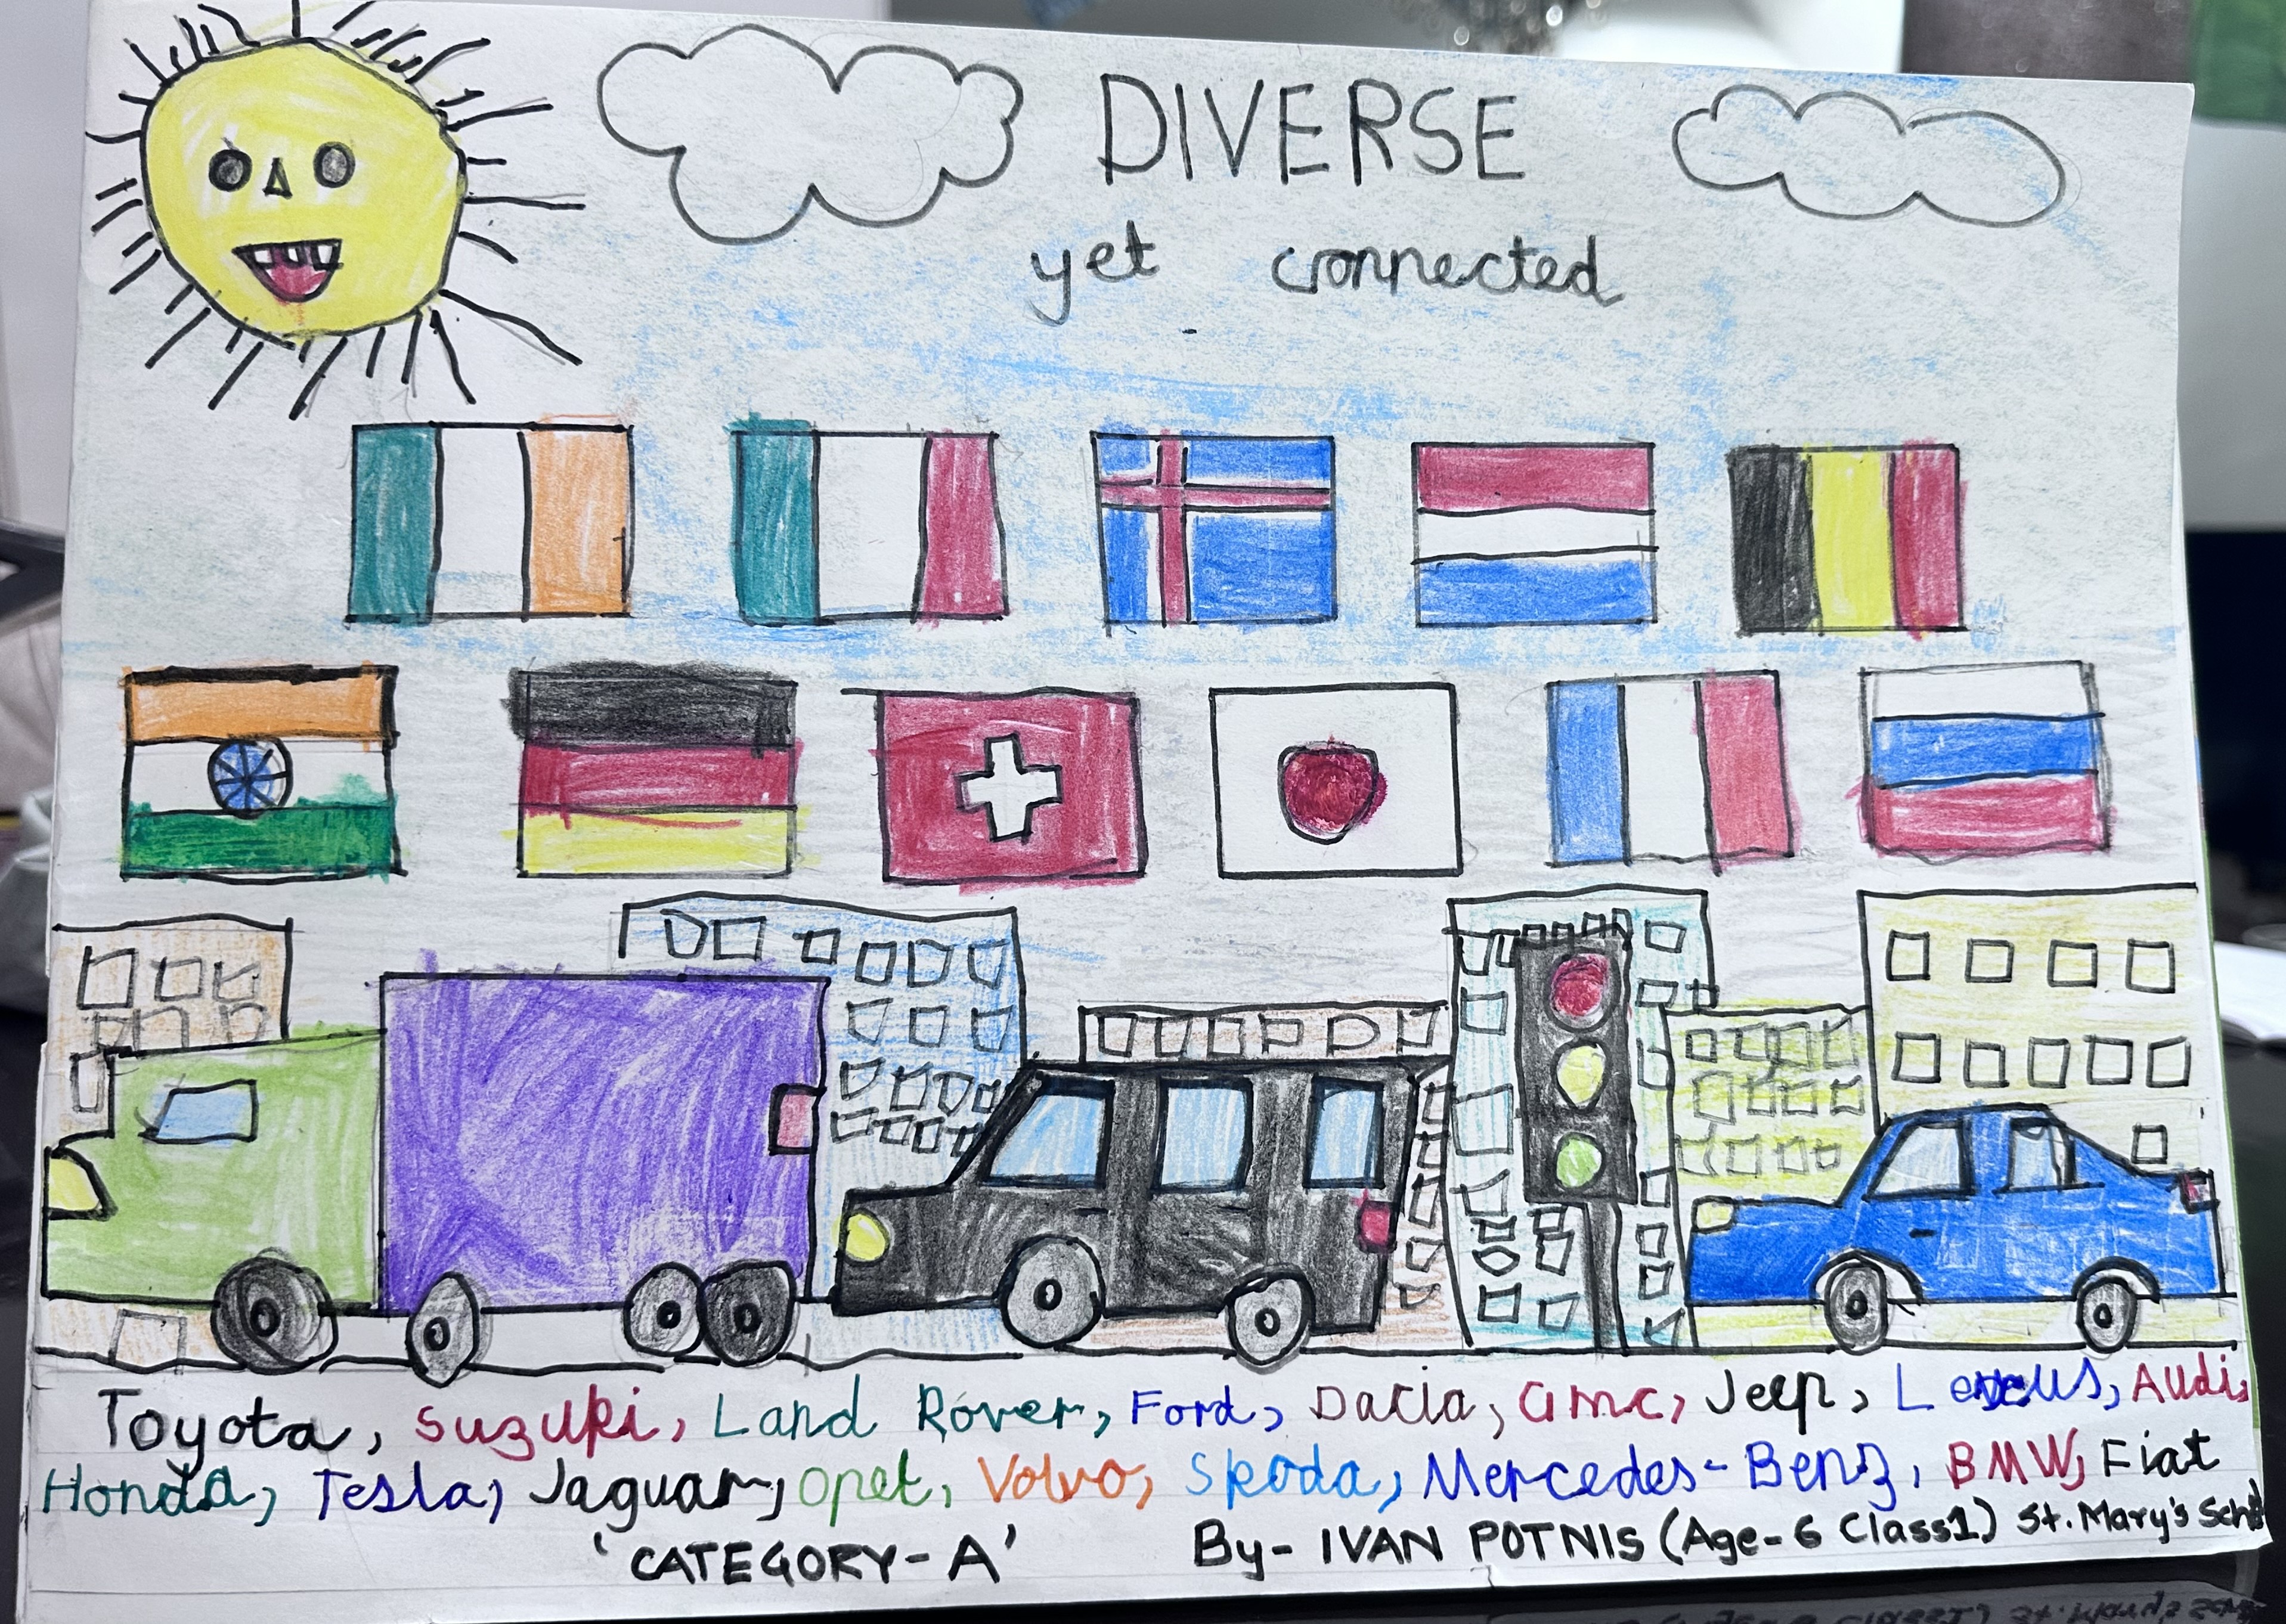 DIVERSE
yet connected
Toyota, Suzuki, Land Rover, Ford, Dacia, Gmc, Jeep, Lexus, Audi,
Honda, Tesla, Jaguar, Opel, Volvo, Skoda, Mercedes-Benz, BMW, Fiat
'CATEGORY-A' By- IVAN POTNIS (Age-6 Class1) St. Mary's School